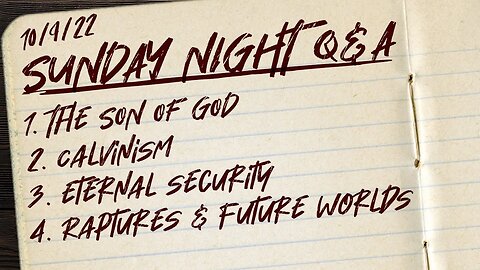 10/9/22
SUNDAY NIGHT Q&A
1. THE SON OF GOD
2. CALVINISM
3. ETERNAL SECURITY
4. RAPTURES & FUTURE WORLDS